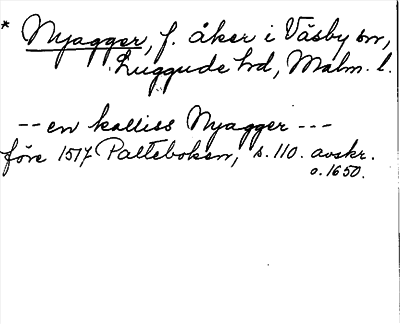 * Nyagger, f. åker i Väsby sn,
Luggude hd, Malm. l.
-- en kalliss Nyagger ---
före 1517 Palteboken, s. 110. avskr.
o. 1650.